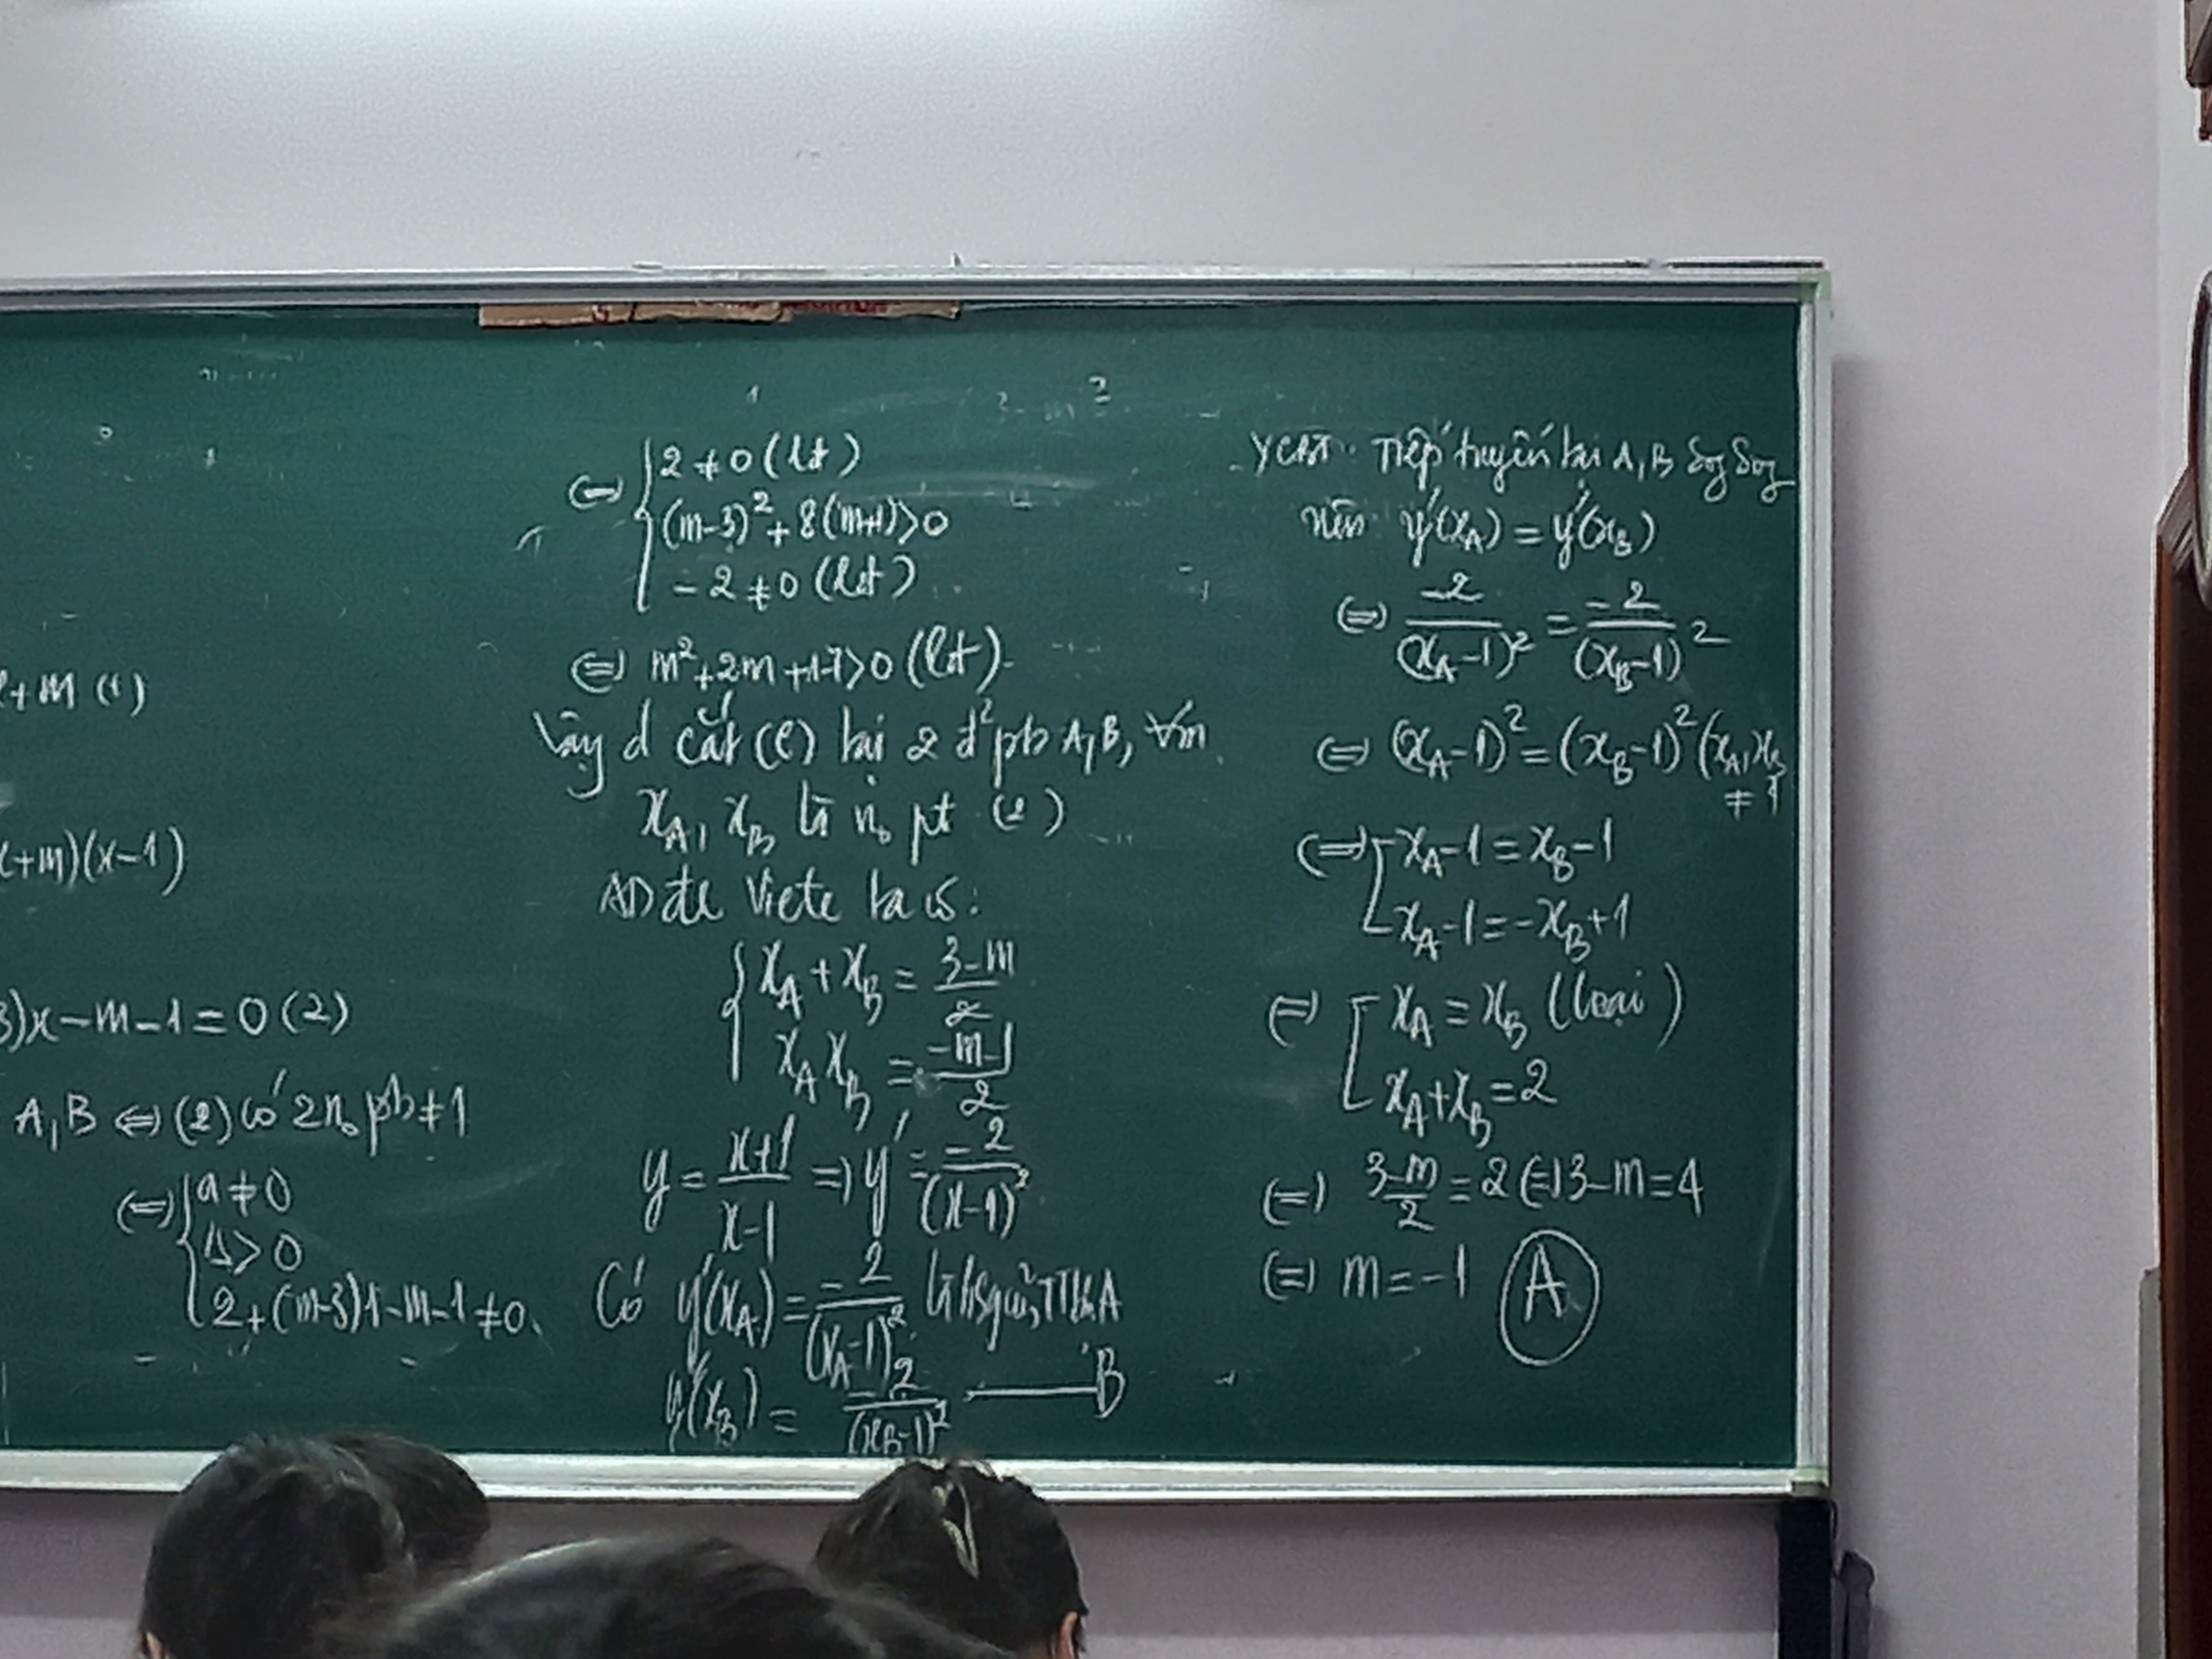 x+m (1)
(x+m)(x-1)
3)x-m-1=0 (2)
A,B ⇔ (2) có 2n₀ pb ≠ 1
⇔ { a ≠ 0
Δ > 0
2+(m-3)1-m-1 ≠ 0
⇔ { 2 ≠ 0 (lđ)
(m-3)²+8(m+1)>0
-2 ≠ 0 (lđ)
⇔ m²+2m+17>0 (lđ)
Vậy d cắt (C) tại 2 đ² pb A,B, ∀m
x_A, x_B là n₀ pt (2)
AD đl Viete ta có:
{ x_A + x_B = (3-m)/2
x_A x_B = (-m-1)/2
y = (x+1)/(x-1) ⇒ y' = -2/(x-1)²
Có y'(x_A) = -2/(x_A-1)² là hsg của TT tại A
y'(x_B) = -2/(x_B-1)² ——— B
YCBT: Tiếp tuyến tại A,B sog sog
nên y'(x_A) = y'(x_B)
⇔ -2/(x_A-1)² = -2/(x_B-1)²
⇔ (x_A-1)² = (x_B-1)² (x_A, x_B ≠ 1
⇔ [ x_A-1 = x_B-1
x_A-1 = -x_B+1
⇔ [ x_A = x_B (loại)
x_A+x_B = 2
⇔ (3-m)/2 = 2 ⇔ 3-m = 4
⇔ m = -1 (A)